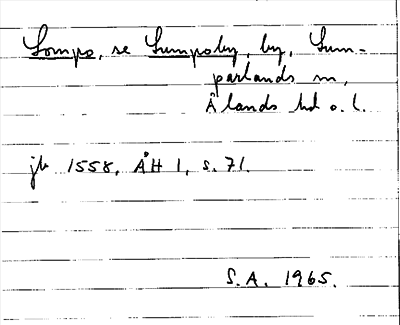 Sompo, se Sumpoby, by, Sum-
parlands sn,
Ålands hd o. l.
jb 1558, ÅH 1, s. 71.
S.A. 1965.